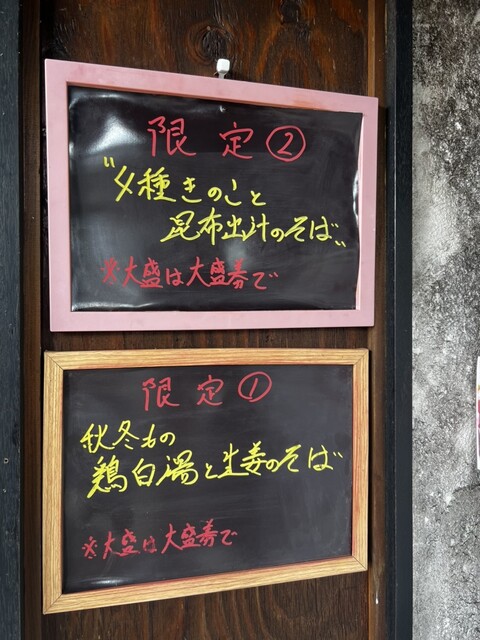 限定②
"〆種きのこと
昆布出汁のそば"
※大盛は大盛券で
限定①
秋冬もの
鶏白湯と生姜のそば
※大盛は大盛券で